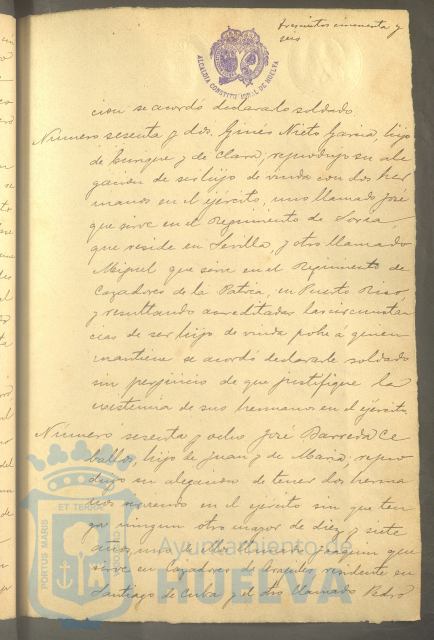 trescientos cincuenta y
seis
ALCALDIA CONSTITUCIONAL DE HUELVA
cion se acordó declararlo soldado
Número sesenta y dos, Ginés Nieto Garcia, hijo
de Enrique y de Clara, reprodujo su ale
gacion de ser hijo de viuda con dos her
manos en el ejército, uno llamado José
que sirve en el Regimiento de Soria
que reside en Sevilla, y otro llamado
Miguel que sirve en el Regimiento de
Cazadores de la Patria, en Puerto Rico,
y resultando acreditadas las circunstan
cias de ser hijo de viuda pobre á quien
mantiene se acordó declararle soldado
sin perjuicio de que justifique la
existencia de sus hermanos en el ejército
Número sesenta y ocho José Barreda Ce
ballos, hijo de Juan y de Maria, repro
dujo su alegacion de tener dos herma
nos sirviendo en el ejercito sin que ten
ga ningun otro mayor de diez y siete
años, uno de ellos llamado Joaquin que
sirve en Cazadores de residente en
Santiago de Cuba y el otro llamado Pedro
PORTUS MARIS ET TERRAE
Ayuntamiento de
HUELVA